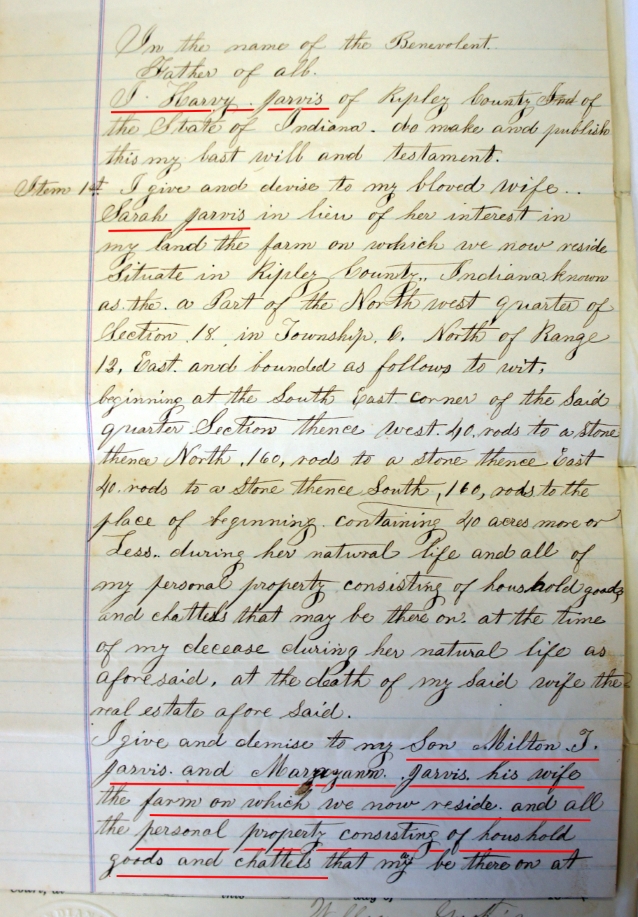 In the name of the Benevolent
Father of all.
I Harvy Jarvis of Ripley County Ind of
the State of Indiana. do make and publish
this my last will and testament.
Item 1st I give and devise to my bloved wife..
Sarah Jarvis in lieu of her interest in
my land the farm on which we now reside
Situate in Ripley County,, Indiana known
as the. a Part of the North west quarter of
Section, 18. in Township, 6, North of Range
12, East. and bounded as follows to wit,
beginning at the South East corner of the Said
quarter Section thence west. 40, rods to a Stone
thence North, 160, rods to a stone thence East
40. rods to a stone thence South, 160, rods to the
place of beginning. containing 40 acres more or
Less.. during her natural life and all of
my personal property consisting of houshold goods
and chattels that may be there on. at the time
of my decease during her natural life as
aforesaid, at the death of my said wife the
real estate afore said.
I give and demise to my Son Milton. T.
Jarvis. and Maryann. Jarvis his wife
the farm on which we now reside. and all
the personal property consisting of houshold
goods and chattels that may be there on at
Court, at
day of